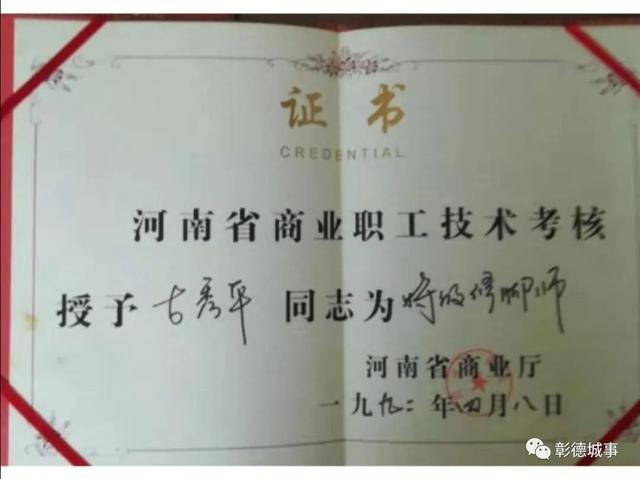 证书
CREDENTIAL
河南省商业职工技术考核
授予古秀平同志为特级修脚师
河南省商业厅
一九九二年四月八日
彰德城事